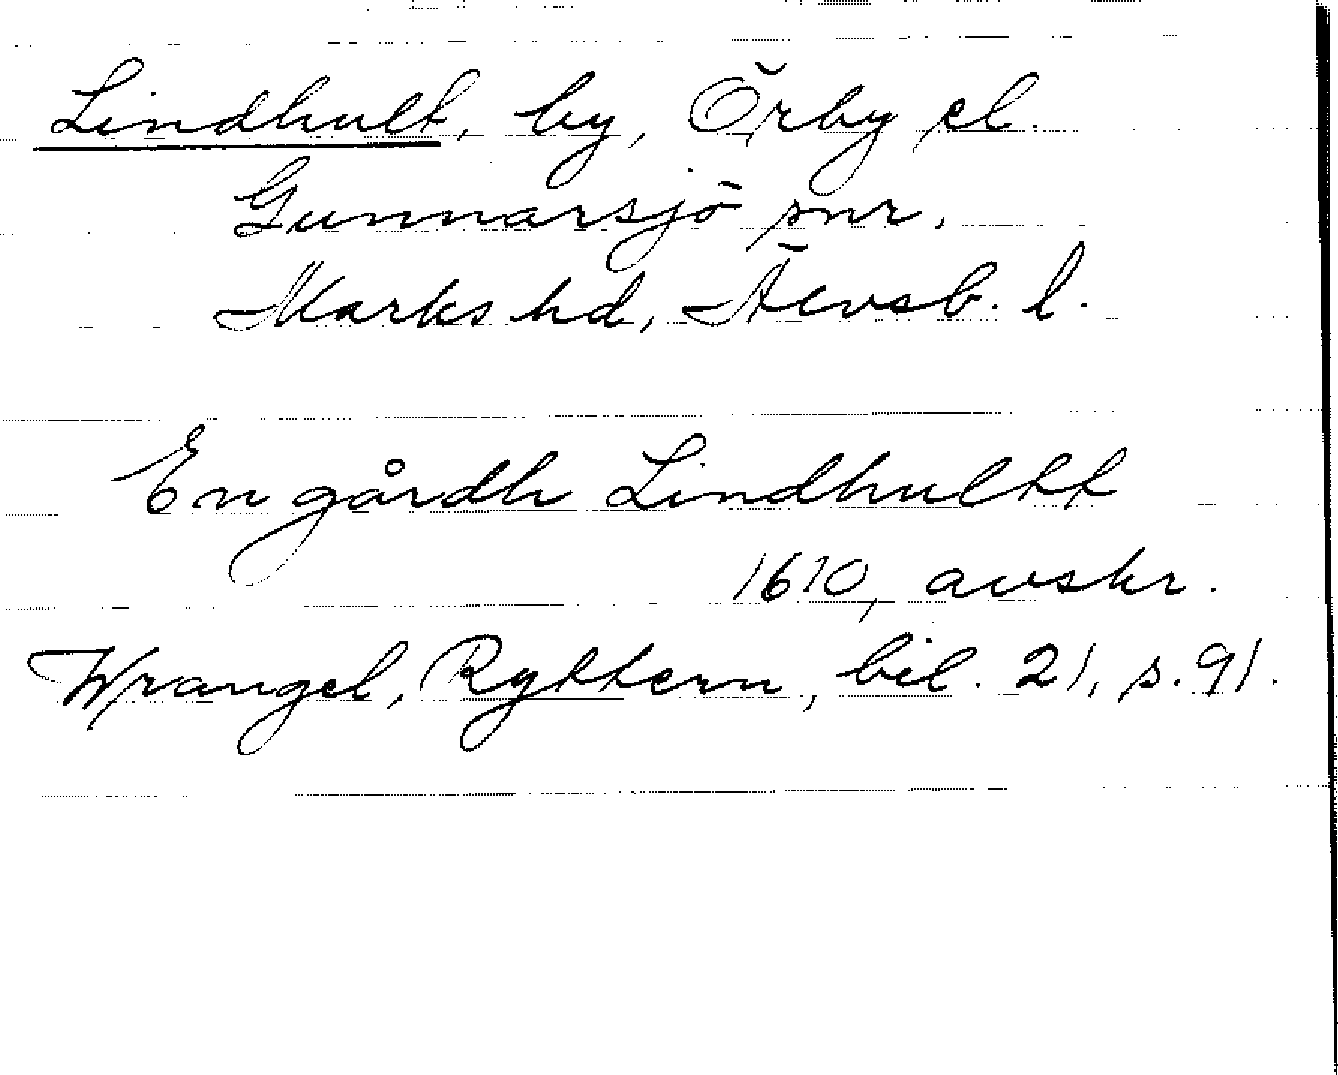 Lindhult, by, Örby el.
Gunnarsjö snr.
Marks hd, Älvsb. l.
En gårdh Lindhultt
1610, avskr.
Wrangel, Ryttern, bil. 21, s. 91.